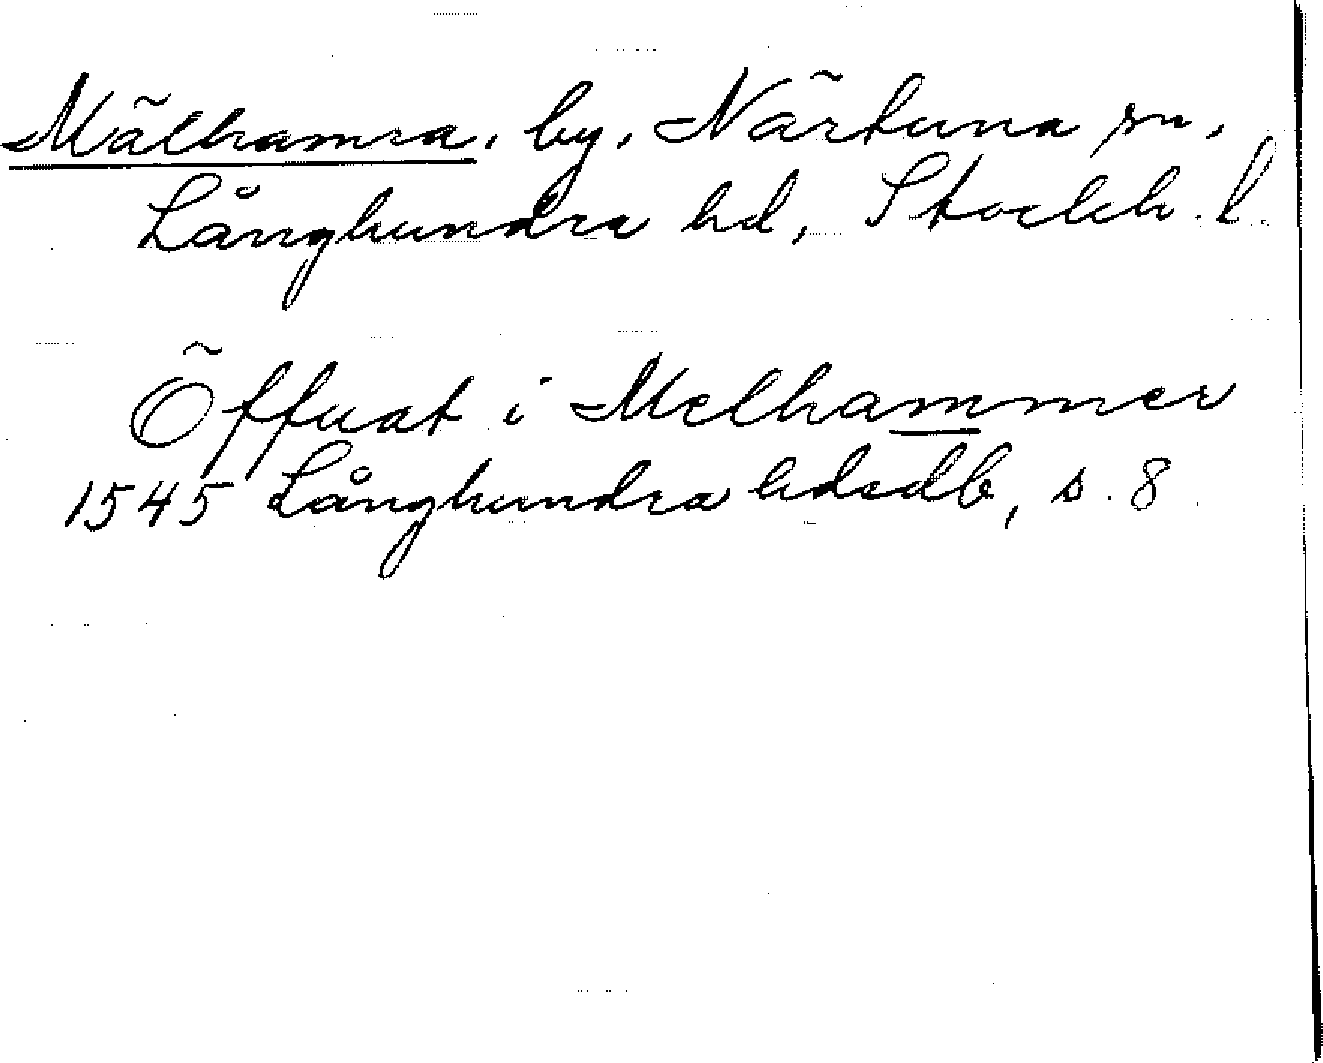 Mälhamra, by, Närtuna sn,
Långhundra hd, Stockh. l.
Öffuat i Melhammer
1545 Långhundra hdsdb, s. 8